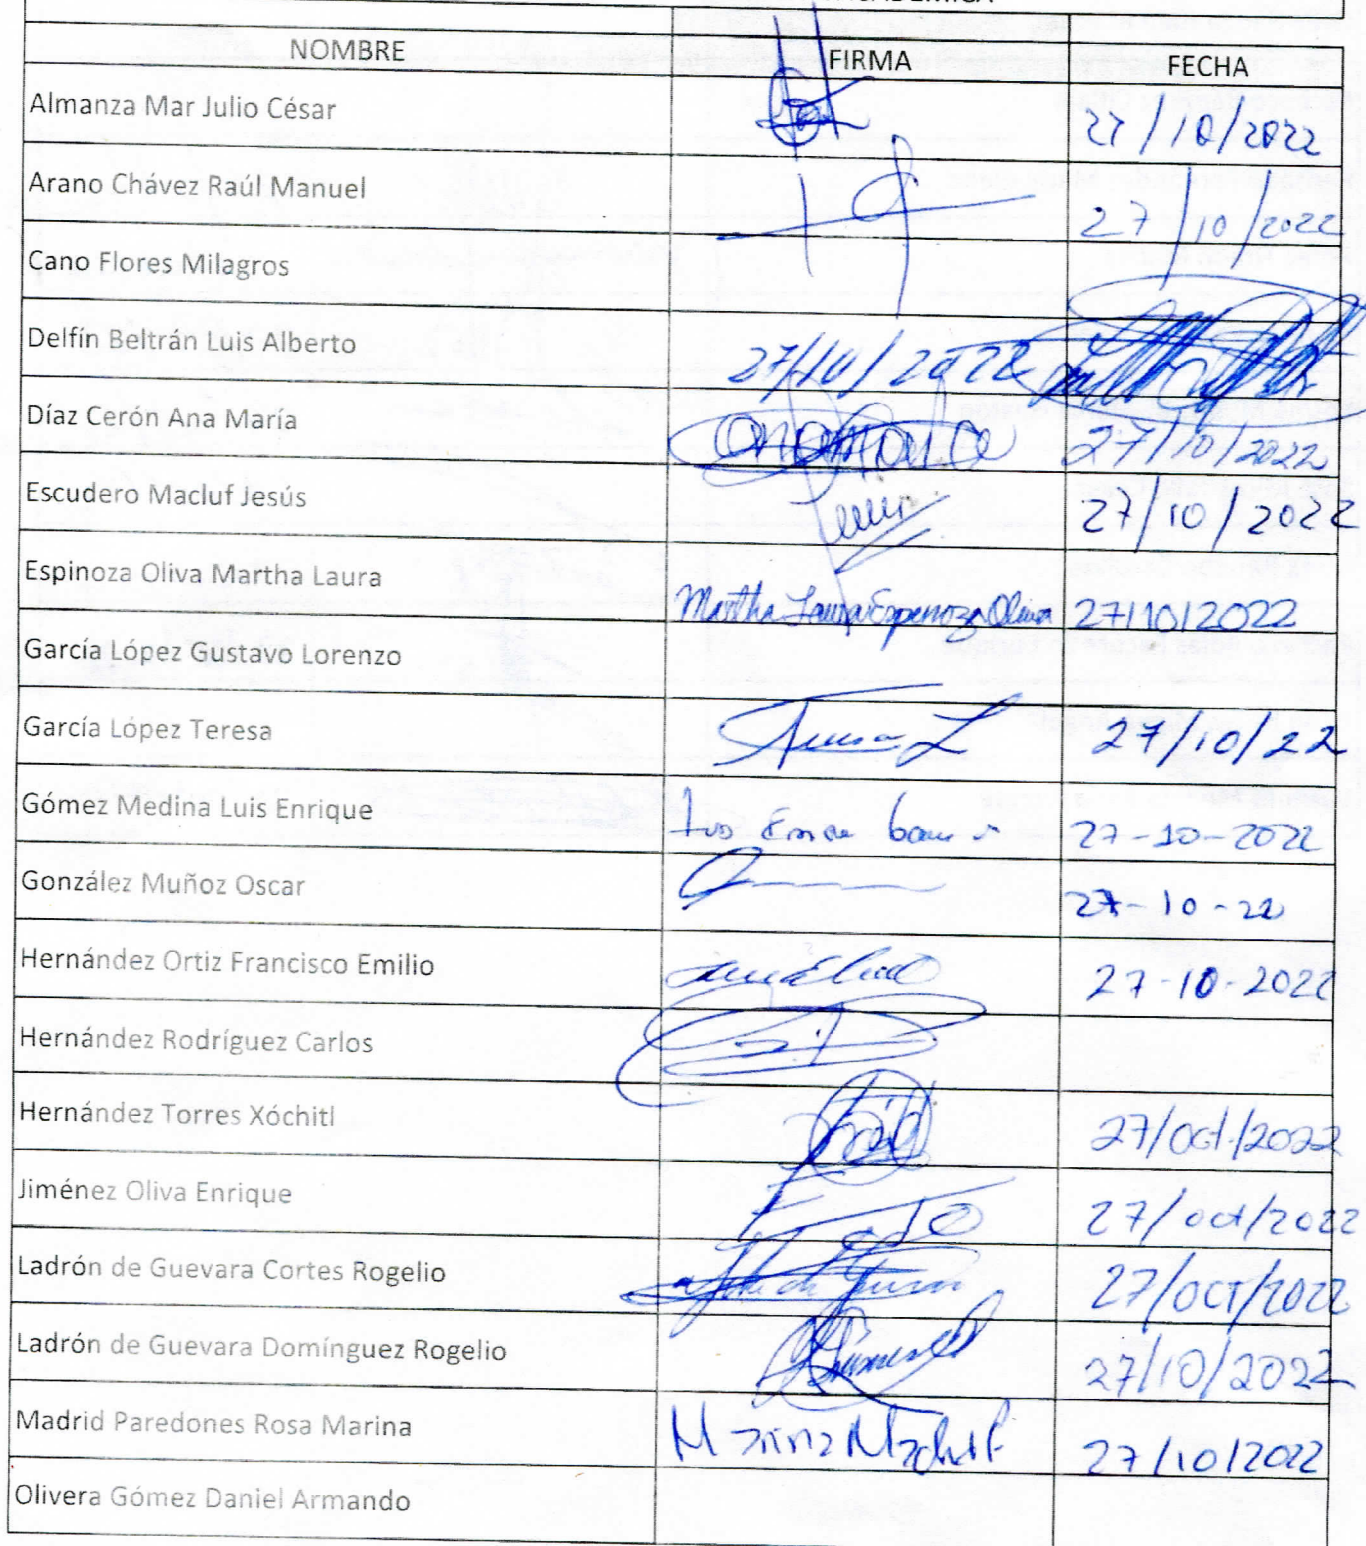 NOMBRE FIRMA FECHA
Almanza Mar Julio César 27/10/2022
Arano Chávez Raúl Manuel 27/10/2022
Cano Flores Milagros
Delfín Beltrán Luis Alberto 27/10/2022
Díaz Cerón Ana María 27/10/2022
Escudero Macluf Jesús 27/10/2022
Espinoza Oliva Martha Laura Martha Laura Espinoza Oliva 27/10/2022
García López Gustavo Lorenzo
García López Teresa 27/10/22
Gómez Medina Luis Enrique 27-10-2022
González Muñoz Oscar 27-10-22
Hernández Ortiz Francisco Emilio 27-10-2022
Hernández Rodríguez Carlos
Hernández Torres Xóchitl 27/oct/2022
Jiménez Oliva Enrique 27/oct/2022
Ladrón de Guevara Cortes Rogelio 27/OCT/2022
Ladrón de Guevara Domínguez Rogelio 27/10/2022
Madrid Paredones Rosa Marina 27/10/2022
Olivera Gómez Daniel Armando